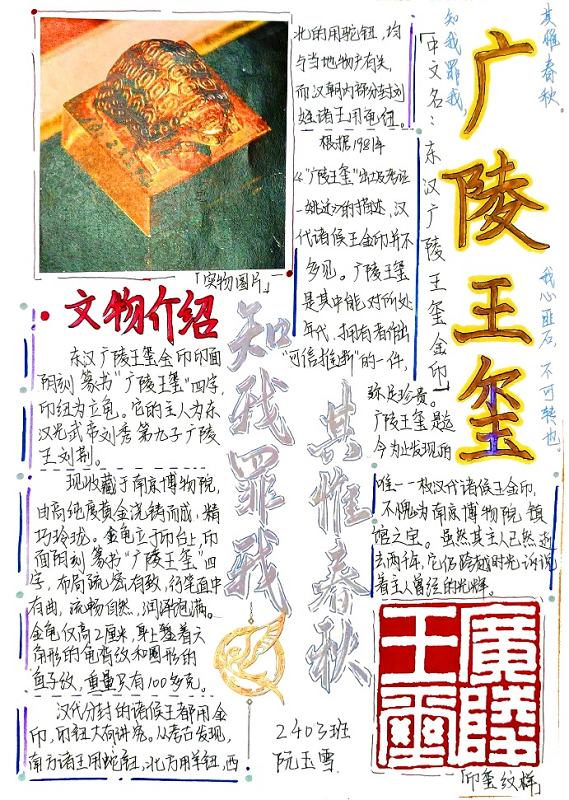 广陵王玺
其惟春秋。
知我罪我
我心匪石，不可转也。
「中文名：东汉广陵王玺金印」
「实物图片」
文物介绍
东汉广陵王玺金印印面
阴刻篆书“广陵王玺”四字，
印纽为立龟。它的主人为东
汉光武帝刘秀第九子广陵
王刘荆。
现收藏于南京博物院，
由高纯度黄金浇铸而成，精
巧玲珑。金龟立于印台上，印
面阴刻篆书“广陵王玺”四
字，布局疏密有致，行笔直中
有曲，流畅自然，润泽饱满。
金龟仅高2厘米，身上錾着六
角形的龟背纹和圆形的
鱼子纹，重量只有100多克。
汉代分封的诸侯王都用金
印，印纽大有讲究。从考古发现，
南方诸王用蛇纽，北方用羊纽，西
北的用驼钮，均
与当地物产有关，
而汉朝内部分封刘
姓诸王用龟纽。
根据1981年
“广陵王玺”出土及考证
一
的描述，汉
代诸侯王金印并不
多见。广陵王玺
是其中能对所处
年代、拥有者作出
“可信推断”的一件，
弥足珍贵。
广陵王玺是迄
今为止发现的
唯一一枚汉代诸侯王金印，
不愧为南京博物院镇
馆之宝。虽然其主人已然逝
去两千年，它仍跨越时光诉说
着主人曾经的光辉。
知我罪我
其惟春秋
2403班
阮玉雪
廣陵王璽
「印玺纹样」